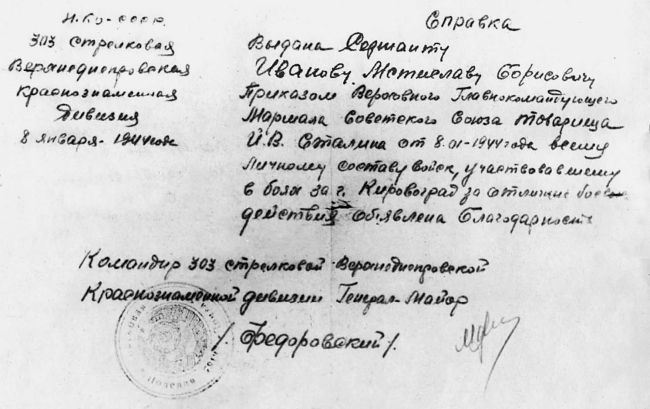 Н.К.О-СССР.
303 стрелковая
Верхнеднепровская
Краснознаменная
дивизия
8 января-1944 года
Справка
Выдана Сержанту
Иванову Мстиславу Борисовичу
Приказом Верховного Главнокомандующего
Маршала Советского Союза товарища
И.В. Сталина от 8.01-1944 года всему
личному составу войск, участвовавшему
в боях за г. Кировоград за отличные
действия объявлена благодарность
Командир 303 стрелковой Верхнеднепровской
Краснознаменной дивизии Генерал-Майор
/Федоровский/.